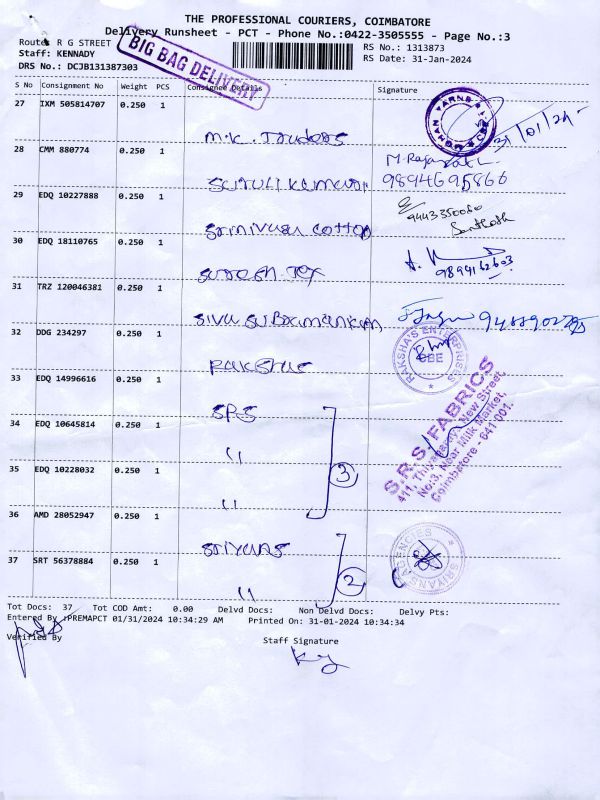 THE PROFESSIONAL COURIERS, COIMBATORE
Delivery Runsheet - PCT - Phone No.:0422-3505555 - Page No.:3
Route: R G STREET
RS No.: 1313873
Staff: KENNADY
RS Date: 31-Jan-2024
DRS No.: DCJB131387303
BIG BAG DELIVERY
S No Consignment No Weight PCS Consignee Details Signature
27 IXM 505814707 0.250 1
31/01/24
28 CMM 880774 0.250 1
9894695866
29 EDQ 10227888 0.250 1 Srinivasa cotton
9443350080
Santhosh
30 EDQ 18110765 0.250 1 Suresh Tex
9894162603
31 TRZ 120046381 0.250 1
32 DDG 234297 0.250 1
RAKSHA'S ENTERPRISES
CBE
33 EDQ 14996616 0.250 1 SRS
S.R.S. FABRICS
New Street,
No:3, Near Milk Market,
Coimbatore - 641 001.
34 EDQ 10645814 0.250 1 "
35 EDQ 10228032 0.250 1 "
3
36 AMD 28052947 0.250 1
SRIYANS AGENCIES
37 SRT 56378884 0.250 1 "
2
Tot Docs: 37 Tot COD Amt: 0.00 Delvd Docs: Non Delvd Docs: Delvy Pts:
Entered By :PREMAPCT 01/31/2024 10:34:29 AM Printed On: 31-01-2024 10:34:34
Verified By Staff Signature